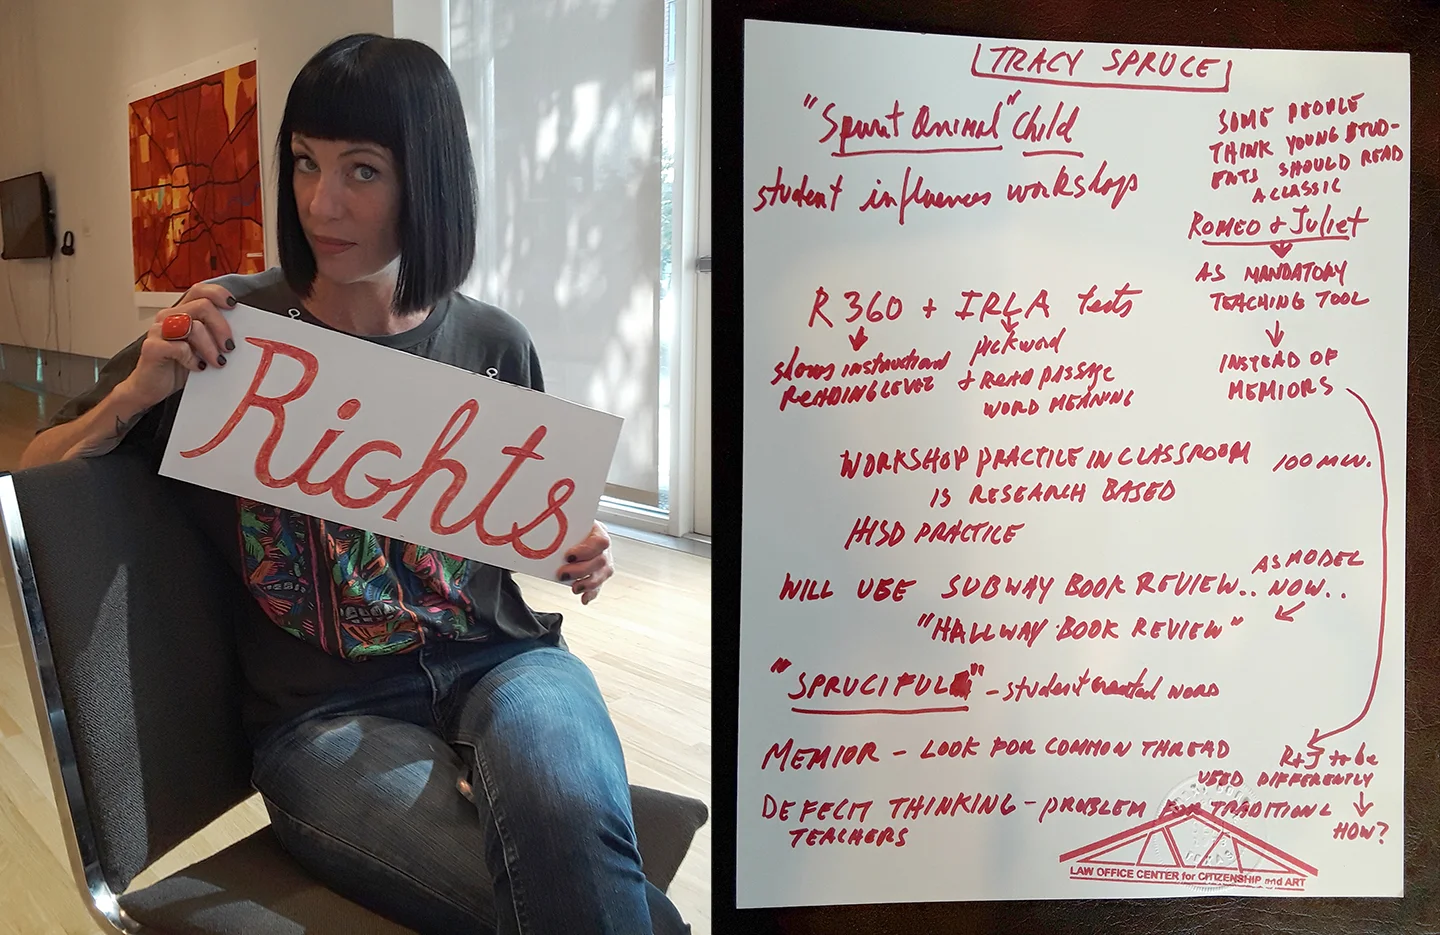 Rights
TRACY SPRUCE
"Spirit Animal" Child
student influences workshops
SOME PEOPLE
THINK YOUNG STUD-
ENTS SHOULD READ
A CLASSIC
ROMEO & JULIET
AS MANDATORY
TEACHING TOOL
INSTEAD OF
MEMIORS
R 360 + IRLA tests
shows instructional
READING LEVEL
pick word
+ READ PASSAGE
WORD MEANING
WORKSHOP PRACTICE IN CLASSROOM 100 MIN.
IS RESEARCH BASED
HISD PRACTICE
WILL USE SUBWAY BOOK REVIEW.. AS MODEL
NOW..
"HALLWAY BOOK REVIEW"
"SPRUCIFUL" - student created word
MEMIOR - LOOK FOR COMMON THREAD
R+J to be
USED DIFFERENTLY
HOW?
DEFECIT THINKING - PROBLEM FOR TRADITIONL
TEACHERS
LAW OFFICE CENTER for CITIZENSHIP and ART